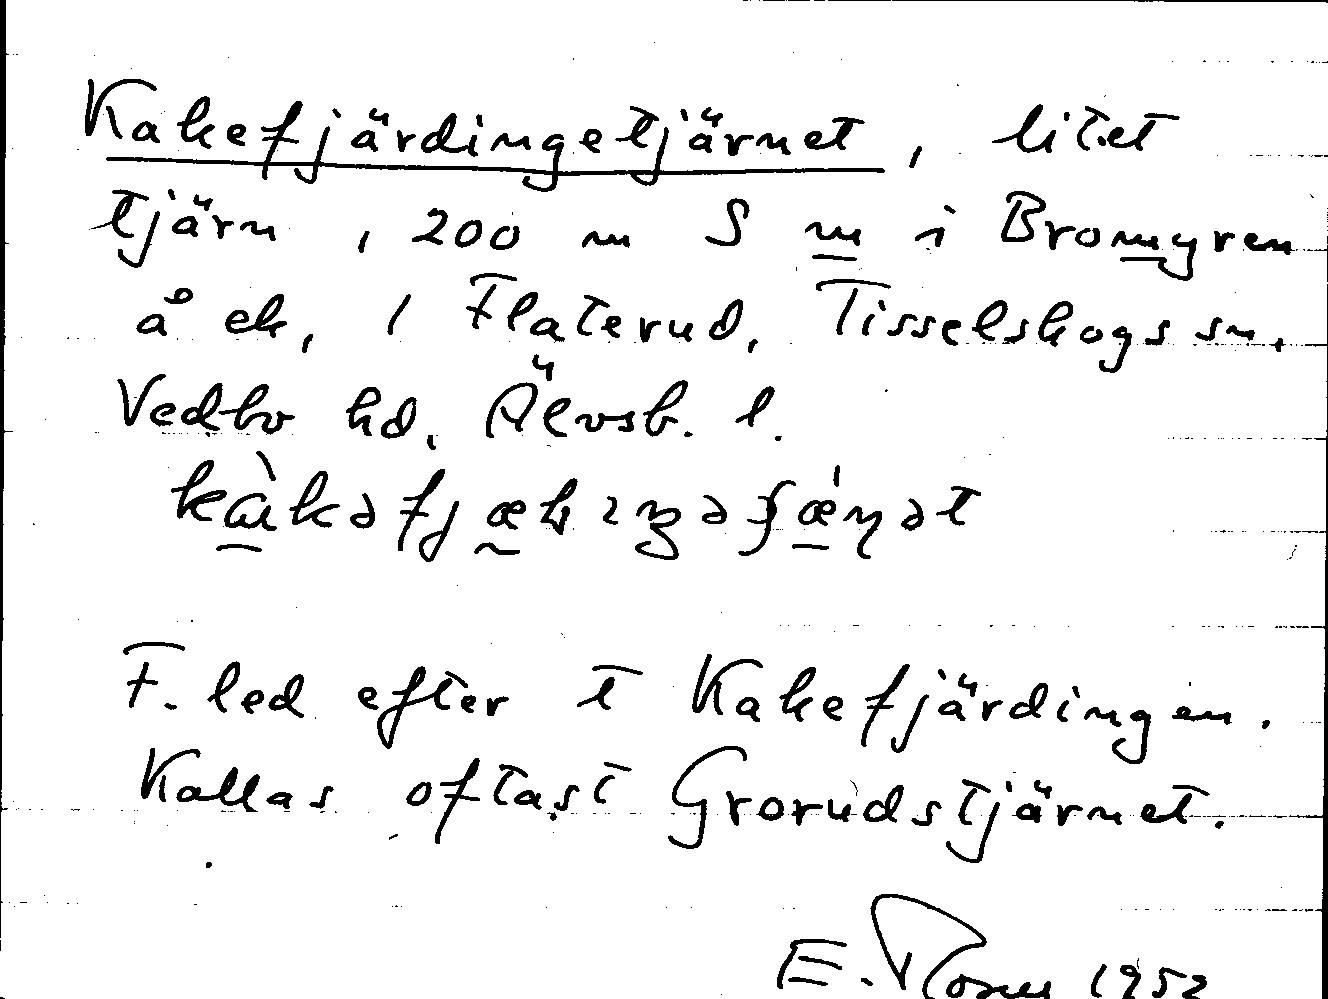 Kakefjärdingetjärnet, litet
tjärn, 200 m S m i Bromyren
å ek, 1 Flaterud, Tisselskogs sn.
Vedbo hd. Älvsb. l.
F. led efter t Kakefjärdingen.
Kallas oftast Grorudstjärnet.
E. 1952